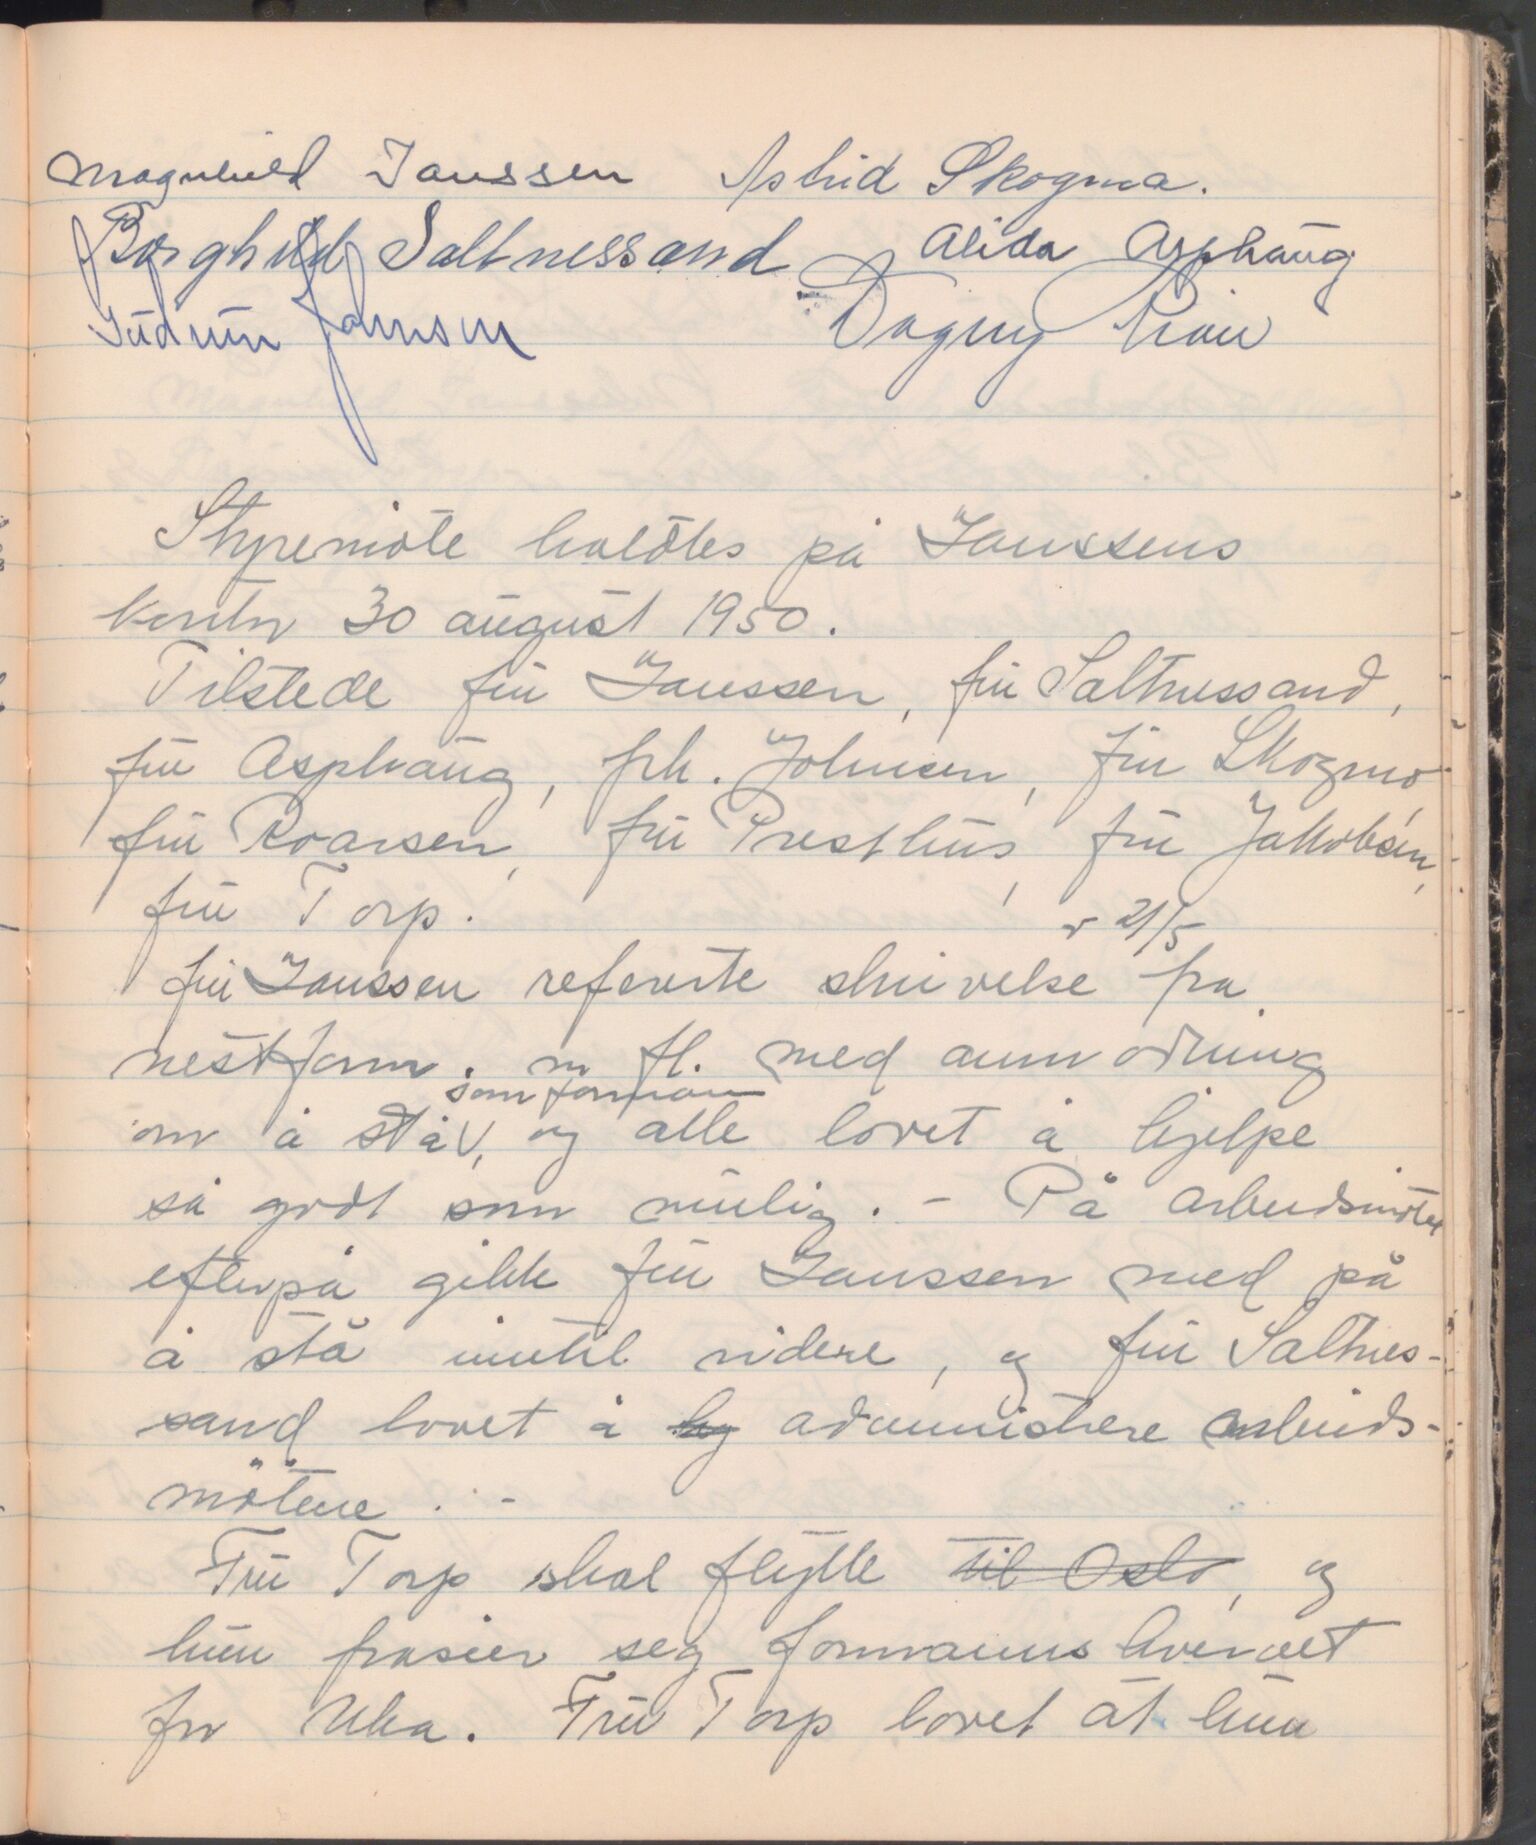 Magnhild Janssen Astrid Skogmo.
Borghild Saltnessand Alida Asphaug
Gudrun Johnsen Dagny Prøis
Styremöte holdtes på Janssens
kontor 30 august 1950.
Tilstede fru Janssen, fru Saltnessand,
fru Asphaug, frk. Johnsen, fru Skogmo
fru Roarsen, fru Presthus, fru Jakobsen,
fru Torp.
fru Janssen referete skrivelse v 21/5 fra
nestform. m fl. med anmodning
om å stå som formann, og alle lovet å hjelpe
så godt som mulig. - På arbeidsmötet
efterpå gikk fru Janssen med på
å stå inntil videre, og fru Saltnes-
sand lovet å administrere arbeids-
mötene . -
Fru Torp skal flytte til Oslo, og
hun frasier seg formannshvervet
for Uka. Fru Torp lovet at hun